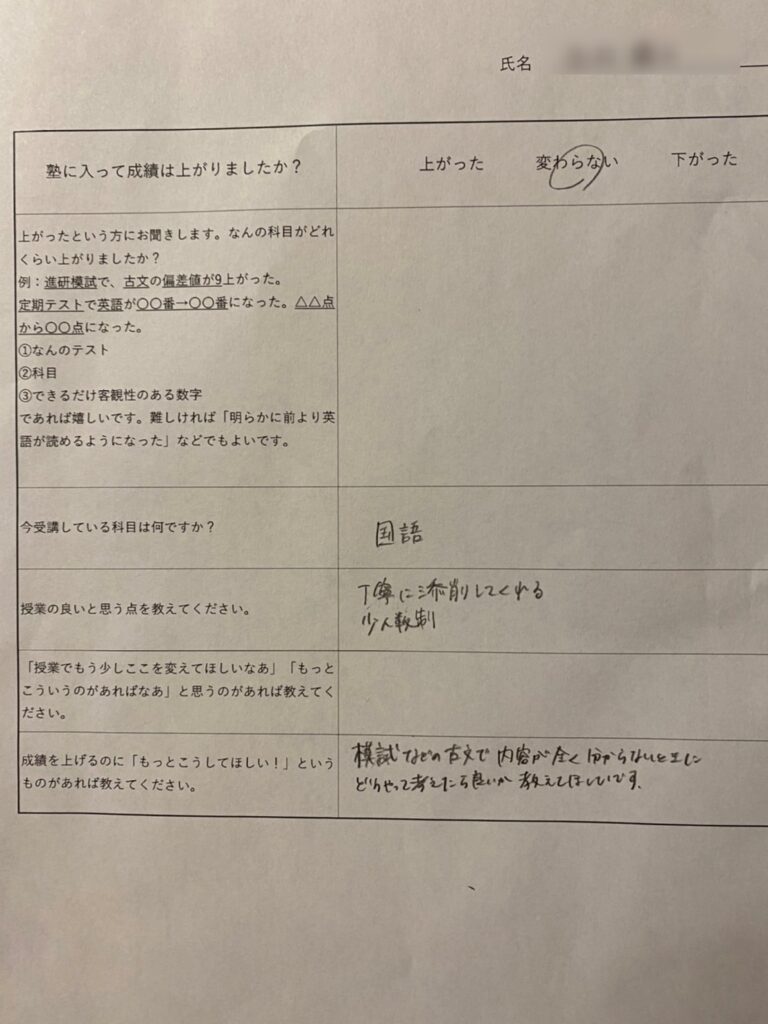 氏名
塾に入って成績は上がりましたか？
上がった 変わらない 下がった
上がったという方にお聞きします。なんの科目がどれ
くらい上がりましたか？
例：進研模試で、古文の偏差値が9上がった。
定期テストで英語が〇〇番→〇〇番になった。△△点
から〇〇点になった。
①なんのテスト
②科目
③できるだけ客観性のある数字
であれば嬉しいです。難しければ「明らかに前より英
語が読めるようになった」などでもよいです。
今受講している科目は何ですか？
国語
授業の良いと思う点を教えてください。
丁寧に添削してくれる
少人数制
「授業でもう少しここを変えてほしいなあ」「もっと
こういうのがあればなあ」と思うのがあれば教えてく
ださい。
成績を上げるのに「もっとこうしてほしい！」という
ものがあれば教えてください。
模試などの古文で内容が全く分からないときに
どうやって考えたら良いか教えてほしいです。